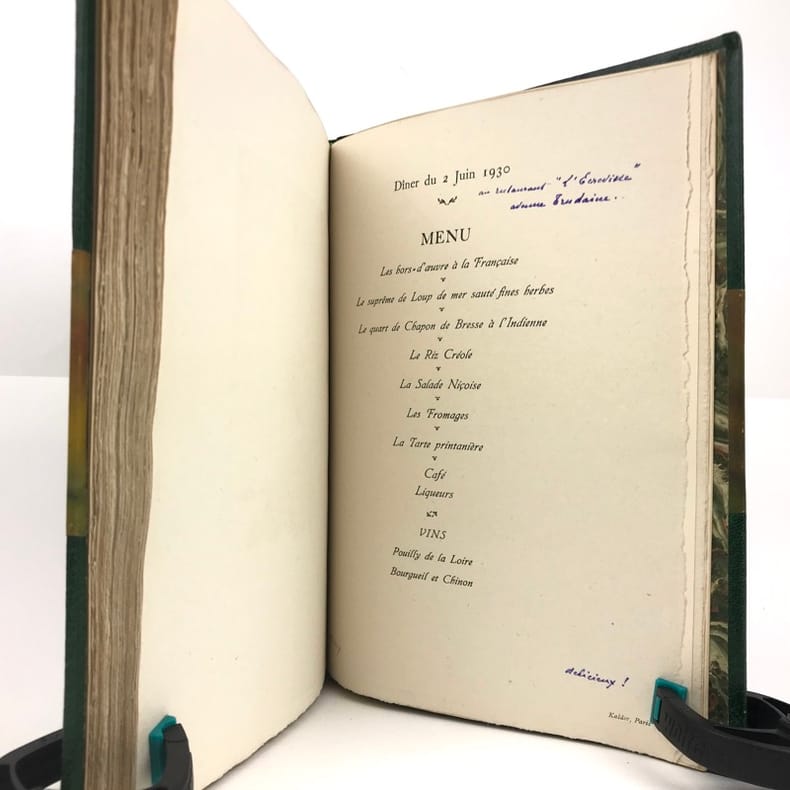 Dîner du 2 Juin 1930
au restaurant "L'Ecrevisse"
avenue Trudaine.
MENU
Les hors-d'œuvre à la Française
Le suprême de Loup de mer sauté fines herbes
Le quart de Chapon de Bresse à l'Indienne
Le Riz Créole
La Salade Niçoise
Les Fromages
La Tarte printanière
Café
Liqueurs
VINS
Pouilly de la Loire
Bourgueil et Chinon
delicieux !
Kaldor, Paris